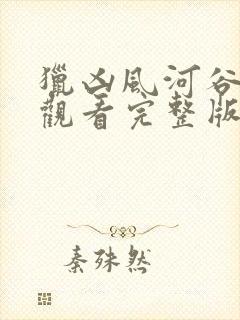 獵凶風河谷
觀看完整版
秦殊然